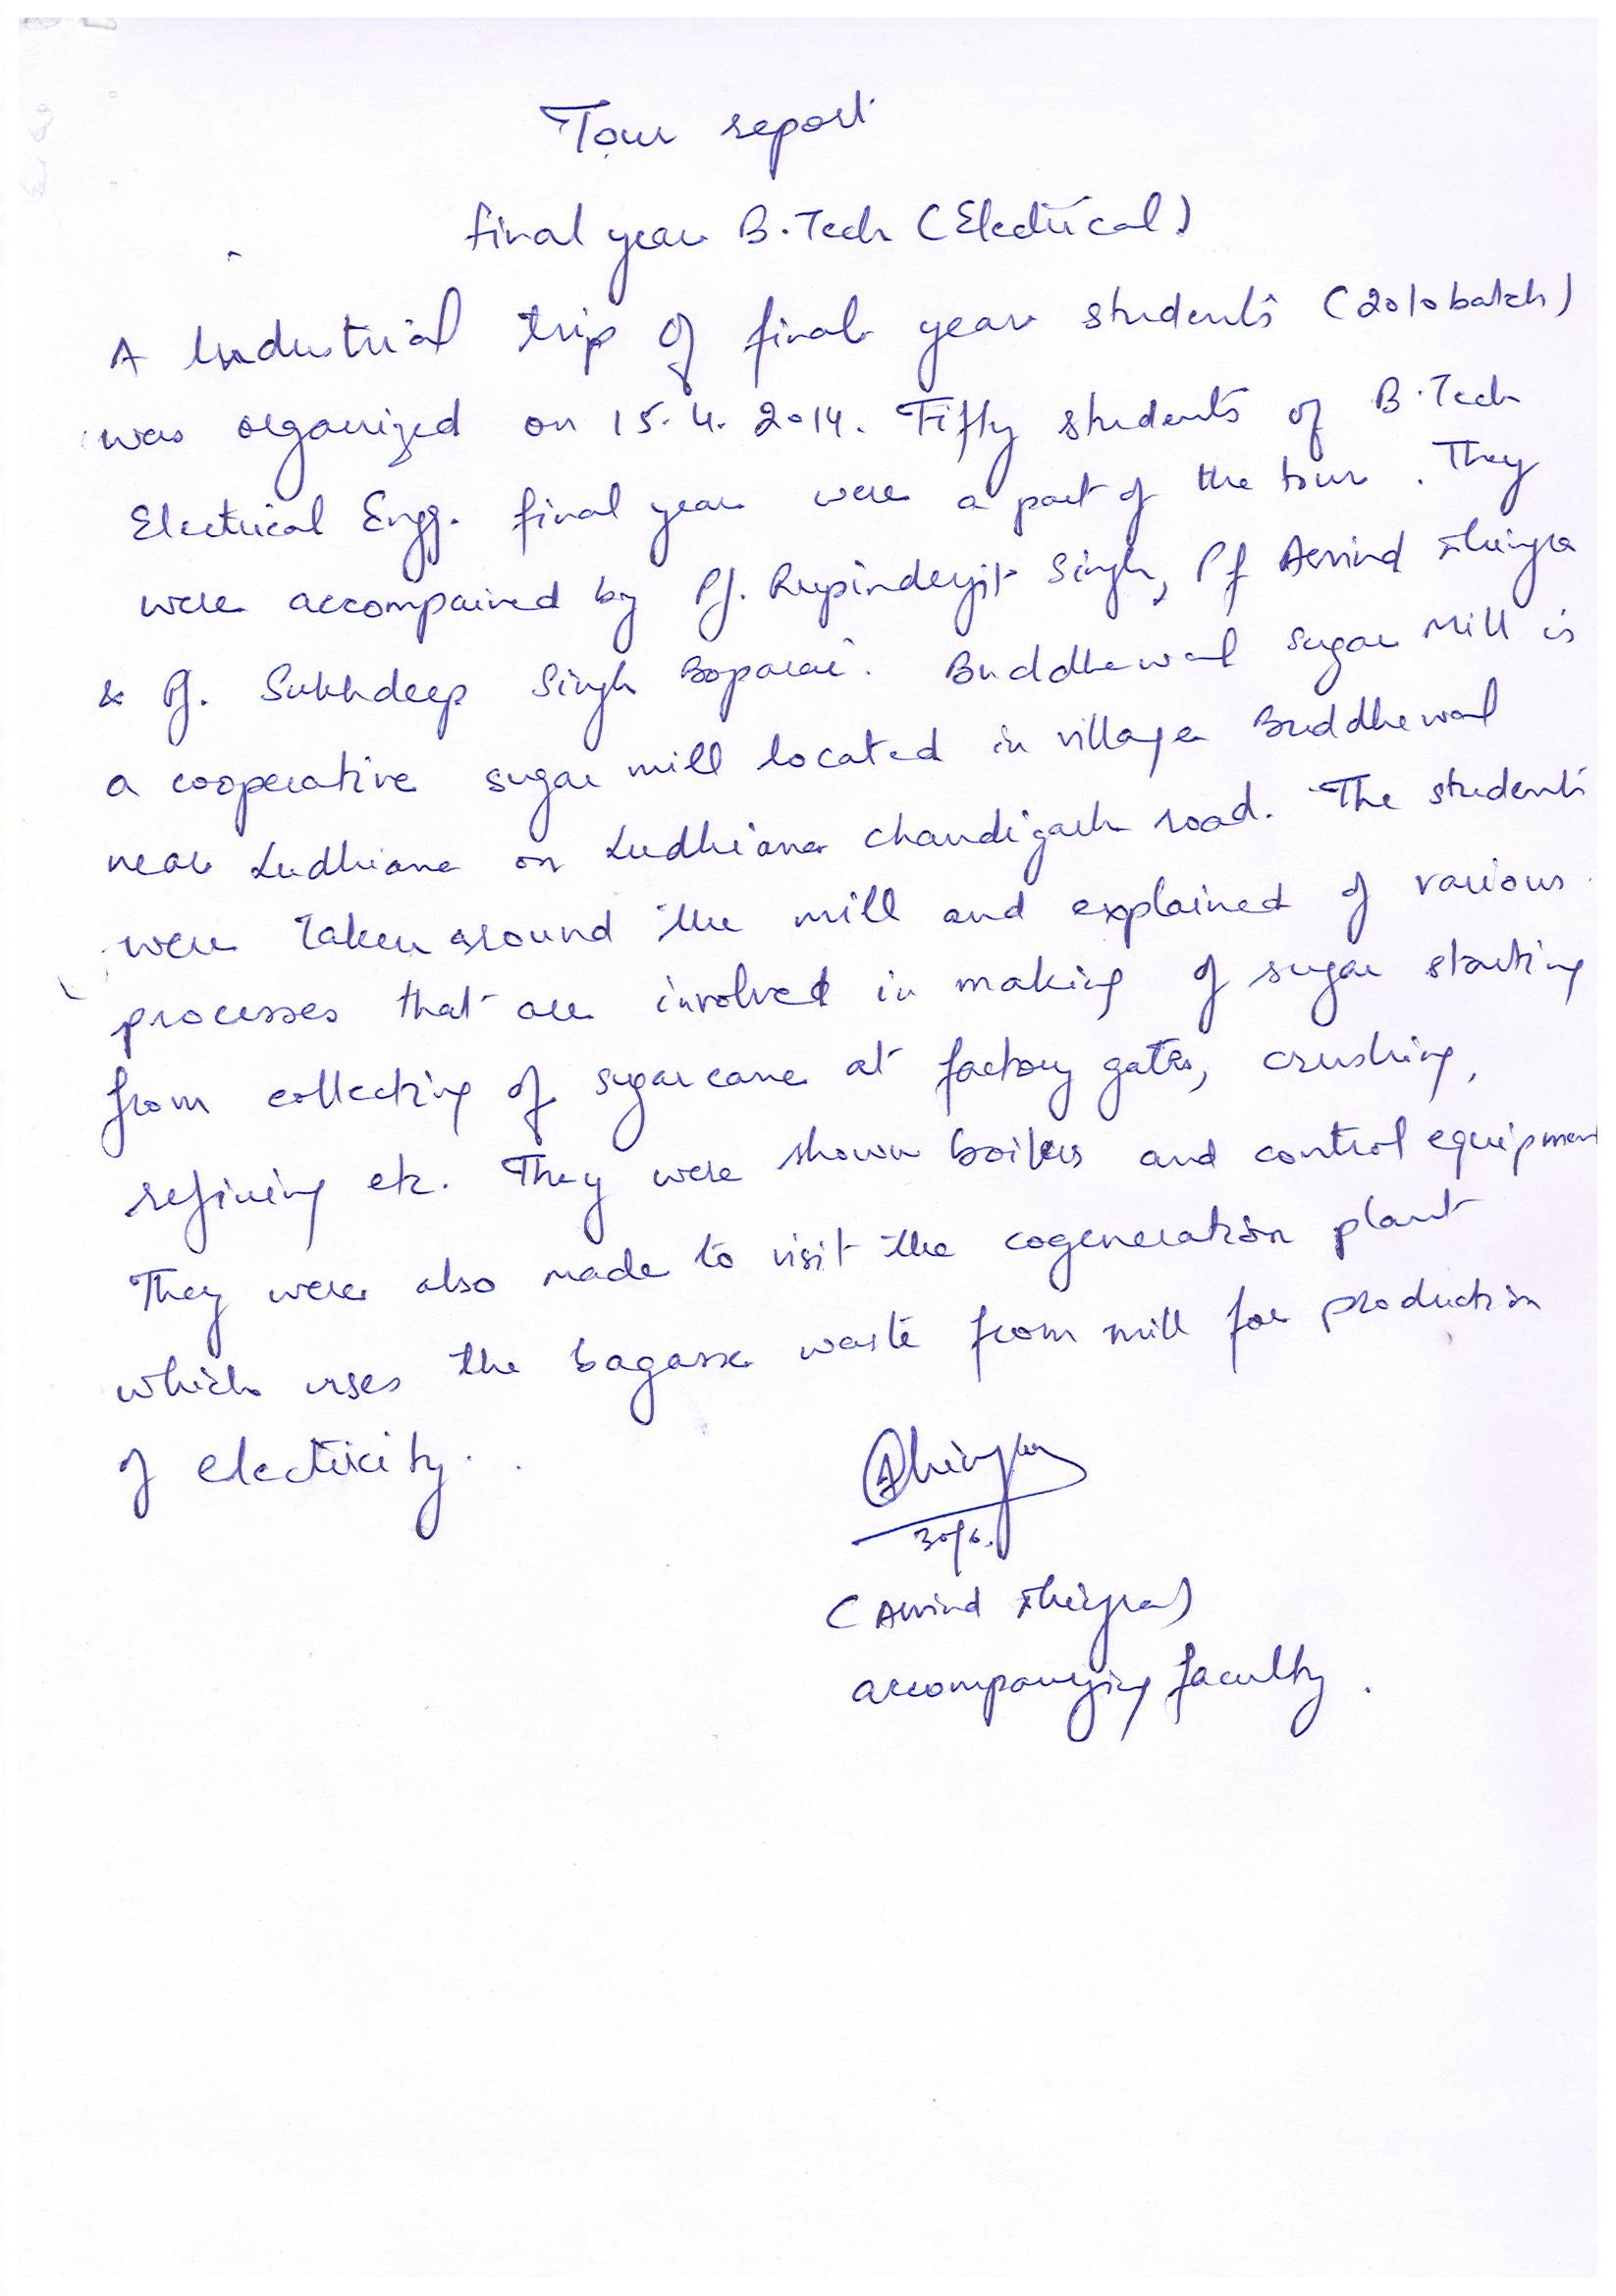 Tour report
final year B.Tech (Electrical)
A Industrial trip of final year students (2010 batch)
was organized on 15.4.2014. Fifty students of B.Tech
Electrical Engg. final year were a part of the tour. They
were accompained by Pf. Rupinderjit Singh, Pf Arvind Dhingra
& Pf. Sukhdeep Singh Boparai. Buddhewal Sugar Mill is
a cooperative sugar mill located in village Buddhewal
near Ludhiana on Ludhiana Chandigarh road. The students
were taken around the mill and explained of various
processes that are involved in making of sugar starting
from collecting of sugarcane at factory gates, crushing,
refining etc. They were shown boilers and control equipmen
They were also made to visit the cogeneration plant
which uses the bagasse waste from mill for production
of electricity.
Dhingra
30/6.
(Arvind Dhingra)
accompanying faculty.